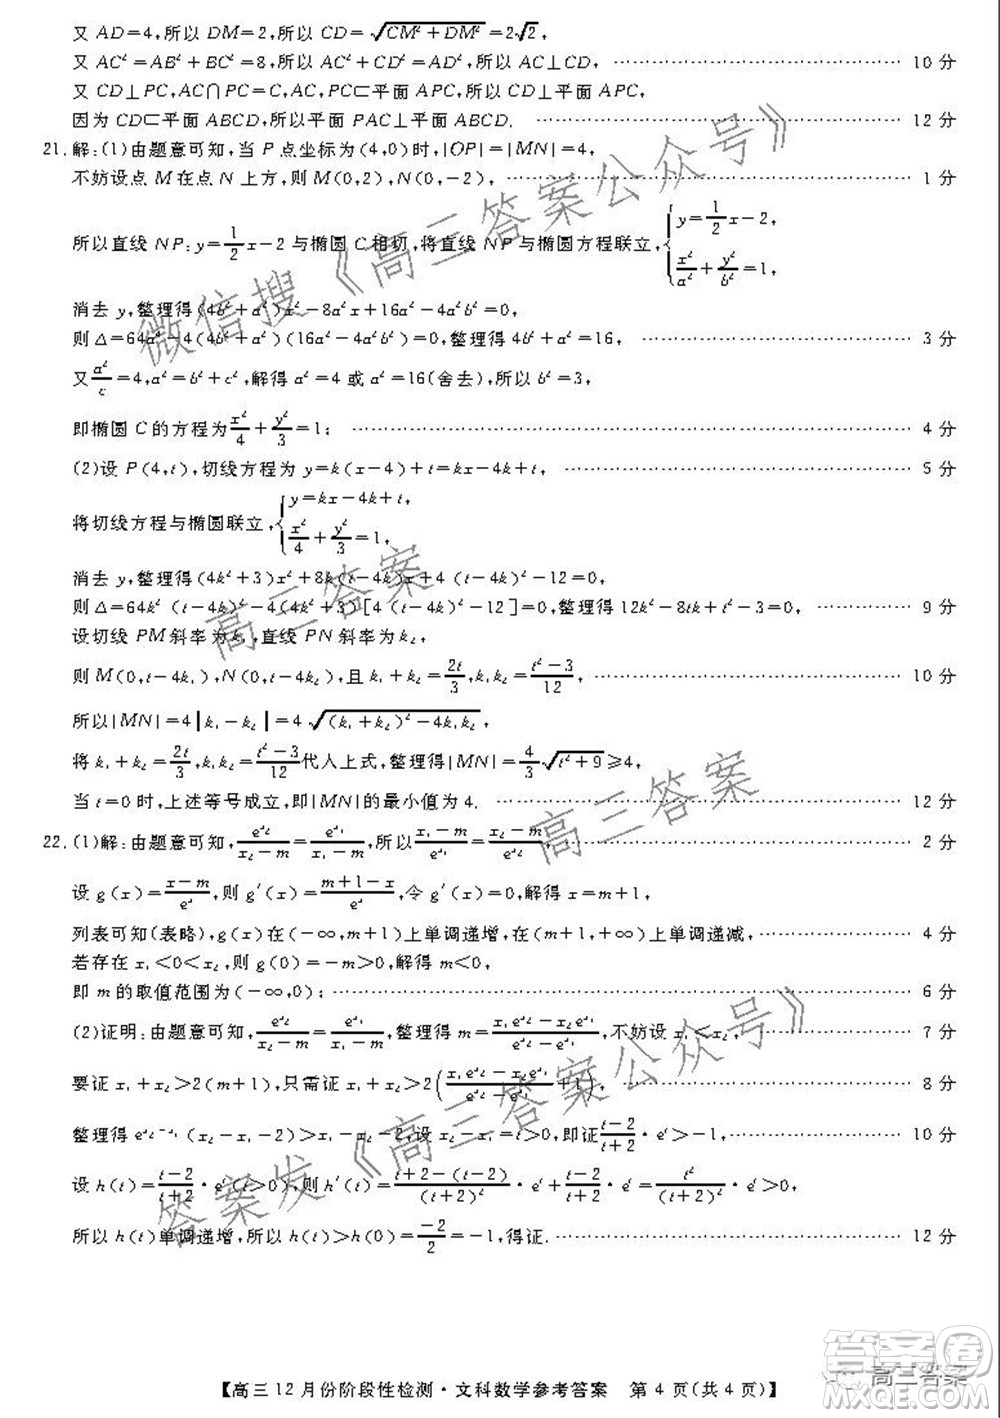 又 AD=4,所以 DM=2,所以 CD=√(CM²+DM²)=2√2,
又 AC²=AB²+BC²=8,所以 AC²+CD²=AD²,所以 AC⊥CD, ………… 10 分
又 CD⊥PC,AC∩PC=C,AC,PC⊂平面 APC,所以 CD⊥平面 APC,
因为 CD⊂平面 ABCD,所以平面 PAC⊥平面 ABCD. ………… 12 分
21.解:(1)由题意可知,当 P 点坐标为(4,0)时,|OP|=|MN|=4,
不妨设点 M 在点 N 上方,则 M(0,2),N(0,-2), ………… 1 分
所以直线 NP:y=1/2x-2 与椭圆 C 相切,将直线 NP 与椭圆方程联立,{y=1/2x-2, x²/a²+y²/b²=1,
消去 y,整理得(4b²+a²)x²-8a²x+16a²-4a²b²=0,
则 Δ=64a⁴-4(4b²+a²)(16a²-4a²b²)=0,整理得 4b²+a²=16, ………… 3 分
又a²/c=4,a²=b²+c²,解得 a²=4 或 a²=16(舍去),所以 b²=3,
即椭圆 C 的方程为x²/4+y²/3=1; ………… 4 分
(2)设 P(4,t),切线方程为 y=k(x-4)+t=kx-4k+t, ………… 5 分
将切线方程与椭圆联立,{y=kx-4k+t, x²/4+y²/3=1,
消去 y,整理得(4k²+3)x²+8k(t-4k)x+4(t-4k)²-12=0,
则 Δ=64k²(t-4k)²-4(4k²+3)[4(t-4k)²-12]=0,整理得 12k²-8tk+t²-3=0, ………… 9 分
设切线 PM 斜率为 k₁,直线 PN 斜率为 k₂,
则 M(0,t-4k₁),N(0,t-4k₂),且 k₁+k₂=2t/3,k₁k₂=(t²-3)/12, ………… 10 分
所以|MN|=4|k₁-k₂|=4√((k₁+k₂)²-4k₁k₂),
将 k₁+k₂=2t/3,k₁k₂=(t²-3)/12代入上式,整理得|MN|=4/3√(t²+9)≥4,
当 t=0 时,上述等号成立,即|MN|的最小值为 4. ………… 12 分
22.(1)解:由题意可知,e^x₂/(x₂-m)=e^x₁/(x₁-m),所以(x₁-m)/e^x₁=(x₂-m)/e^x₂, ………… 2 分
设 g(x)=(x-m)/e^x,则 g′(x)=(m+1-x)/e^x,令 g′(x)=0,解得 x=m+1,
列表可知(表略),g(x)在(-∞,m+1)上单调递增,在(m+1,+∞)上单调递减, ………… 4 分
若存在 x₁<0<x₂,则 g(0)=-m>0,解得 m<0,
即 m 的取值范围为(-∞,0); ………… 6 分
(2)证明:由题意可知,e^x₂/(x₂-m)=e^x₁/(x₁-m),整理得 m=(x₁e^x₂-x₂e^x₁)/(e^x₂-e^x₁),不妨设 x₁<x₂, ………… 7 分
要证 x₁+x₂>2(m+1),只需证 x₁+x₂>2((x₁e^x₂-x₂e^x₁)/(e^x₂-e^x₁)+1), ………… 8 分
整理得 e^(x₂-x₁)(x₂-x₁-2)>x₁-x₂-2,设 x₂-x₁=t>0,即证(t-2)/(t+2)·e^t>-1, ………… 10 分
设 h(t)=(t-2)/(t+2)·e^t(t>0),则 h′(t)=(t+2-(t-2))/(t+2)²·e^t+(t-2)/(t+2)·e^t=t²/(t+2)²·e^t>0,
所以 h(t)单调递增,所以 h(t)>h(0)=-2/2=-1,得证. ………… 12 分
【高三 12 月份阶段性检测·文科数学参考答案 第 4 页(共 4 页)】
微信搜《高三答案公众号》
高三答案
高三答案
答案发《高三答案公众号》
答案卷
高三答案